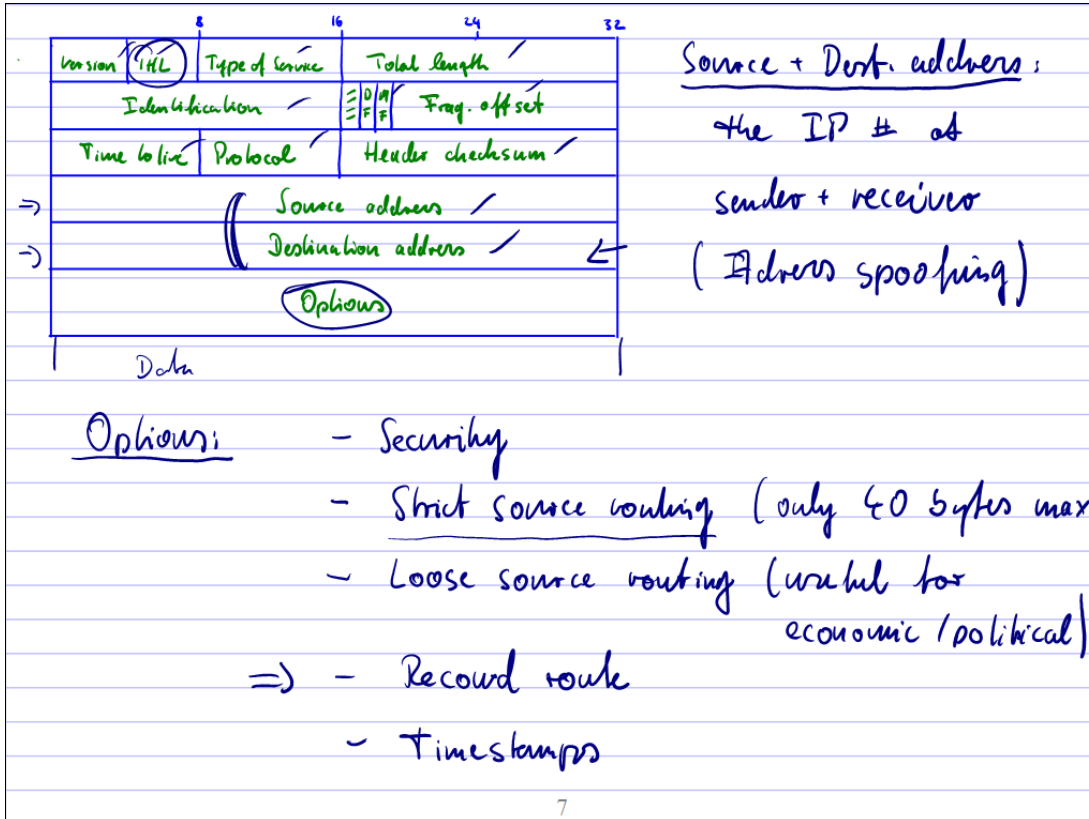 8 16 24 32
Version IHL Type of Service Total length
Identification DF MF Frag. offset
Time to live Protocol Header checksum
⇒ Source address
⇒ Destination address ←
Options
Data
Source + Dest. address:
the IP # of
sender + receiver
(Adress spoofing)
Options:
- Security
- Strict source routing (only 40 bytes max
- Loose source routing (useful for
economic / political)
⇒ - Record route
- Timestamps
7